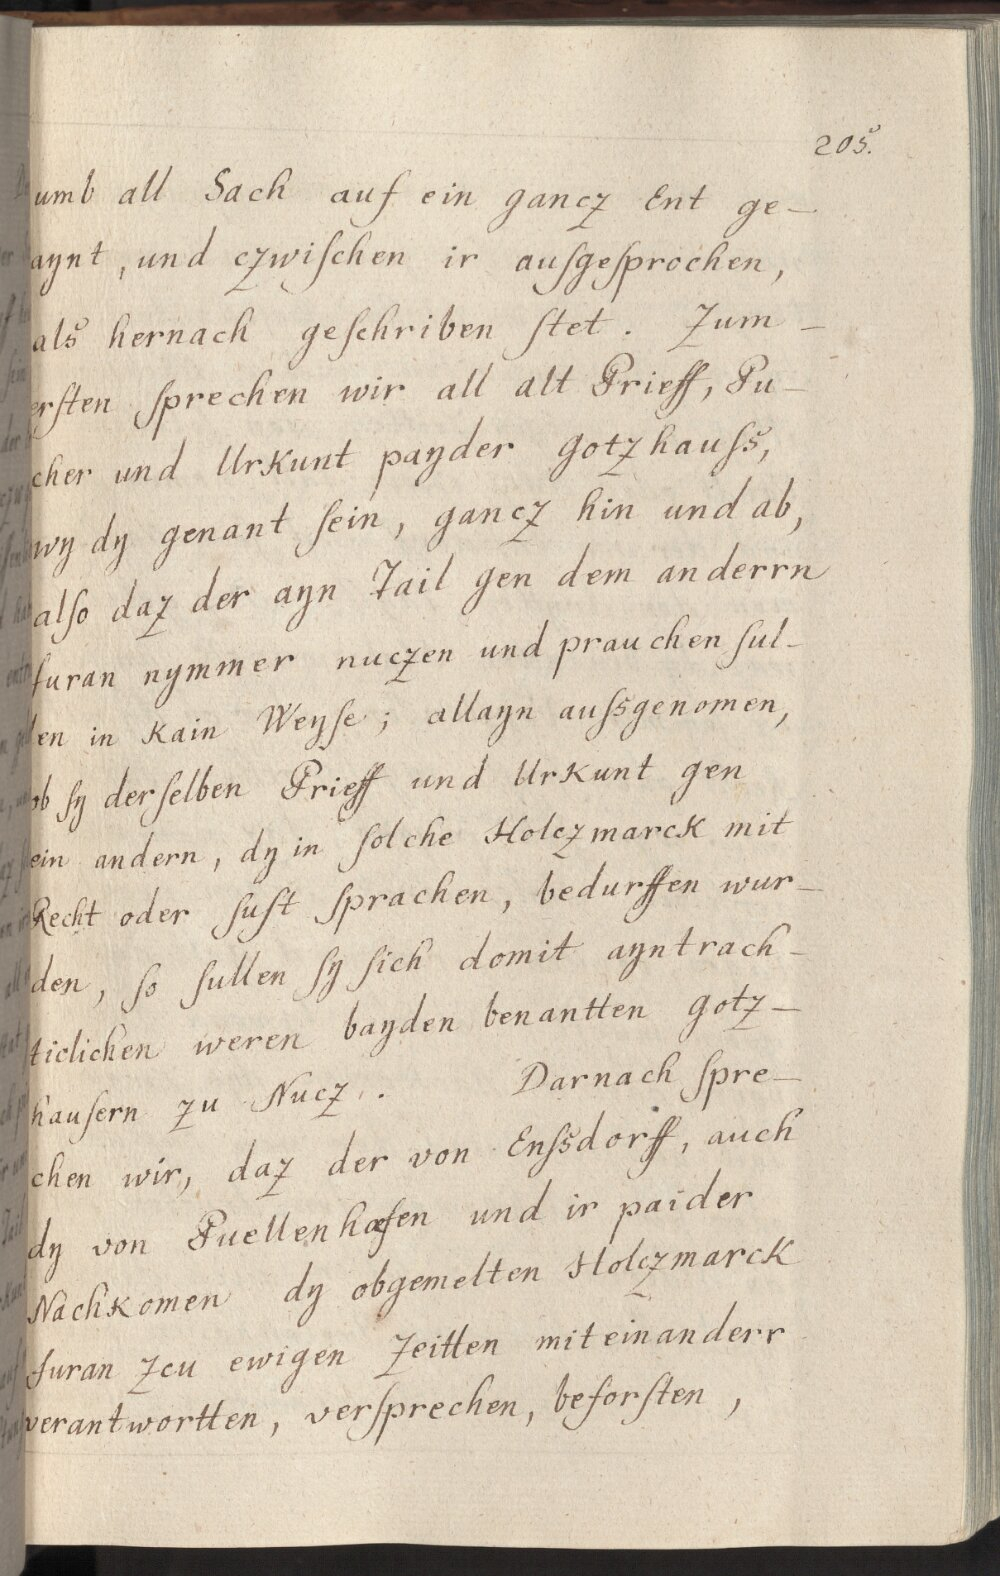 205.
umb all Sach auf ein gancz Ent ge-
aynt, und czwischen ir ausgesprochen,
als hernach geschriben stet. Zum-
ersten sprechen wir all alt Prieff, Pu-
cher und Urkunt payder gotzhauss,
wy dy genant sein, gancz hin und ab,
also daz der ayn Tail gen dem anderrn
furan nymmer nuczen und prauchen sul-
len in kain Weyse; allayn aussgenomen,
ob sy derselben Prieff und Urkunt gen
ein andern, dy in solche Holczmarck mit
Recht oder sust sprachen, bedurffen wur-
den, so sullen sy sich domit ayntrach-
ticlichen weren bayden benantten gotz-
hausern zu Nucz. Darnach spre-
chen wir, daz der von Enssdorff, auch
dy von Puellenhofen und ir paider
Nachkomen dy obgemelten Holczmarck
furan zcu ewigen Zeitten miteinanderr
verantwortten, versprechen, beforsten,